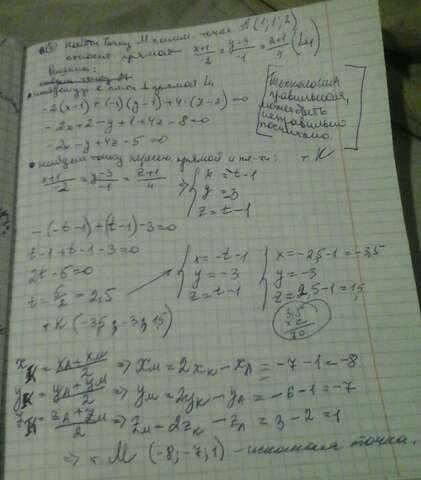 б) Найти точку M симм. точке A (1; 1; 2)
относит. прямой x+1/-2 = y-3/-1 = z+1/4 (L₁)
Решение:
перпендик. к прямой L₁
-2(x-1)+(-1)(y-1)+4·(z-2)=0
-2x+2-y+1+4z-8=0
2x-y+4z-5=0
[Технология правильная,
может быть
неправильно
посчитано.]
• найдем точку пересеч. прямой и пл-ти: т. K
x+1/-2 = y-3/-1 = z+1/4 ⇒ { x=-t-1
y=-3
z=t-1
-(-t-1)+(t-1)-3=0
t-1+t-1-3=0
2t-5=0
t=5/2=2,5
{ x=-t-1
y=-3
z=t-1
{ x=-2,5-1=-3,5
y=-3
z=2,5-1=1,5
т. K (-3,5; -3; 1,5)
x_K = x_A+x_M/2 ⇒ x_M=2x_K-x_A=-7-1=-8
y_K = y_A+y_M/2 ⇒ y_M=2y_K-y_A=-6-1=-7
z_K = z_A+z_M/2 ⇒ z_M=2z_K-z_A=3-2=1
⇒ т. M (-8; -7; 1) - искомая точка.